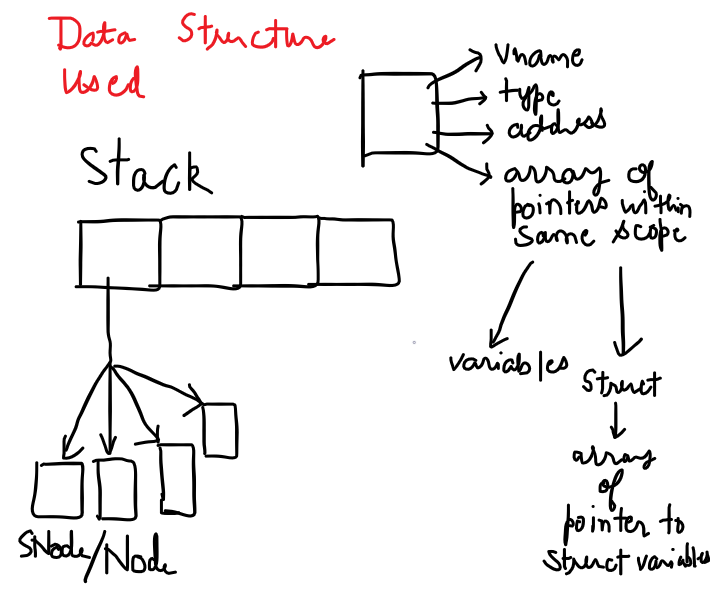 Data Structure
Used
Stack
SNode/Node
Vname
type
address
array of
pointers within
same scope
variables
Struct
array
of
pointer to
struct variables